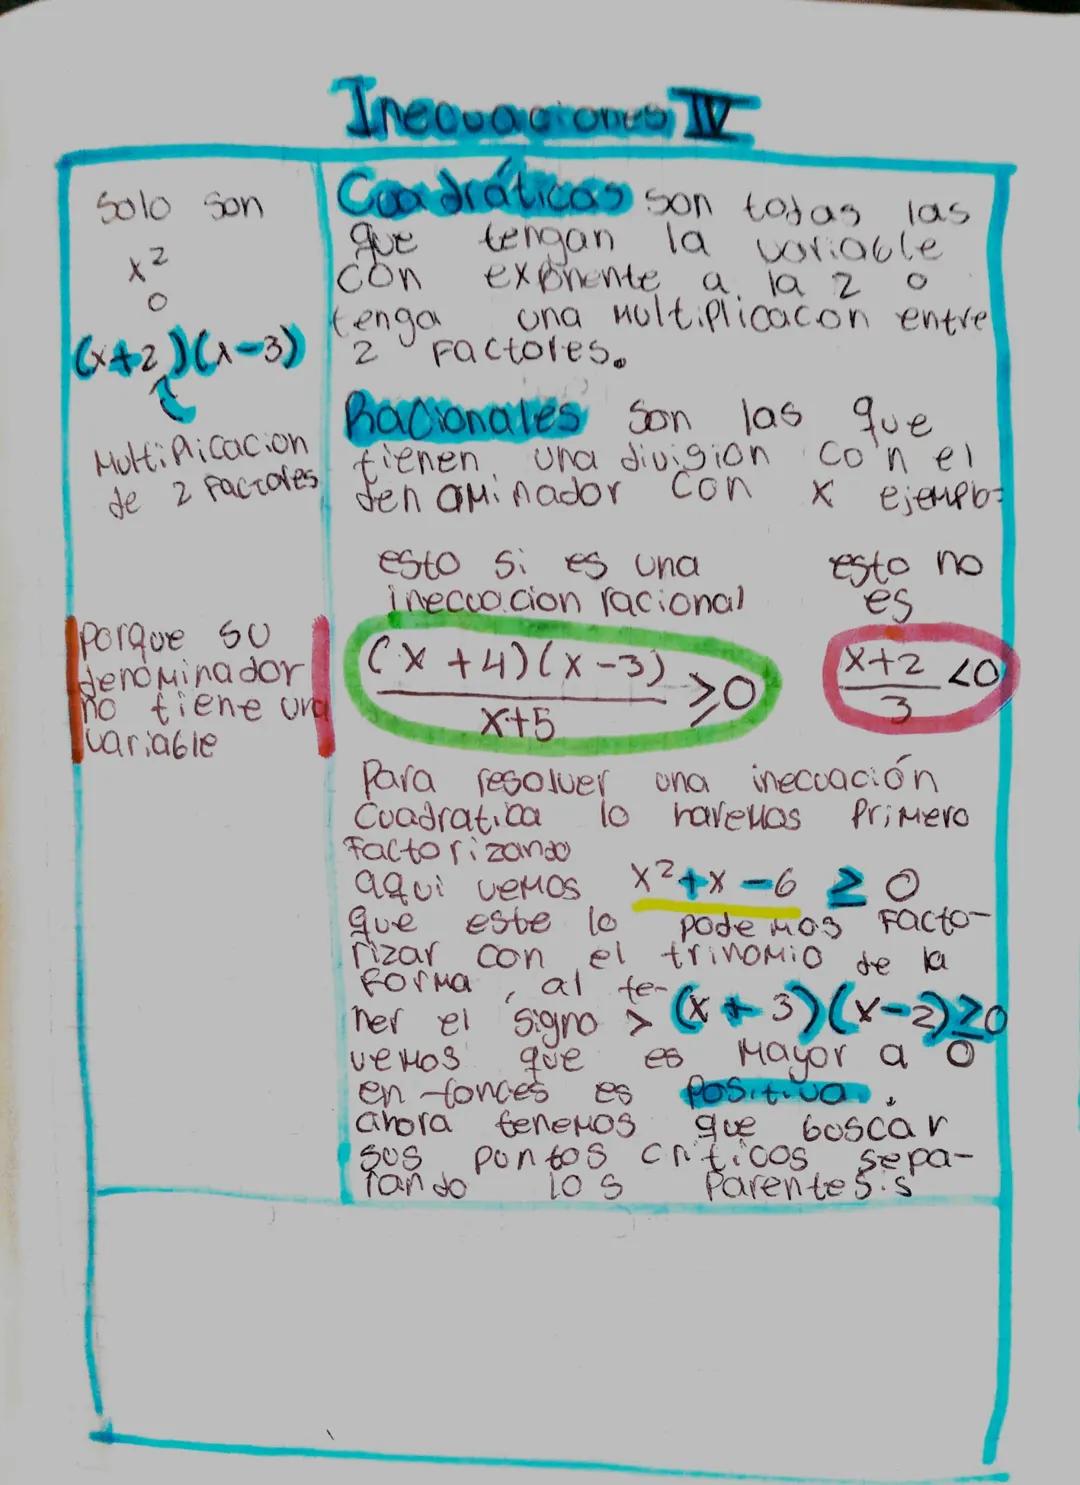 Inecuaciones IV
Solo son
x²
o
(x+2)(x-3)
Multiplicacion
de 2 factores
porque su
denominador
no tiene una
variable
Cuadráticas son todas las
que tengan la variable
con exponente a la 2 o
tenga una multiplicacon entre
2 factores.
Racionales son las que
tienen una division con el
denominador con x ejemplo=
esto si es una
inecuacion racional
esto no
es
(x+4)(x-3)
x+5
≥0
x+2
3
<0
Para resolver una inecuación
Cuadratica lo haremos Primero
Factorizando
aqui vemos x²+x-6 ≥ 0
que este lo podemos Facto-
rizar con el trinomio de la
Forma, al te- (x+3)(x-2)≥0
ner el signo >
vemos que es Mayor a 0
en-tonces es positiva.
ahora tenemos que buscar
sus puntos criticos sepa-
rando los parentesis